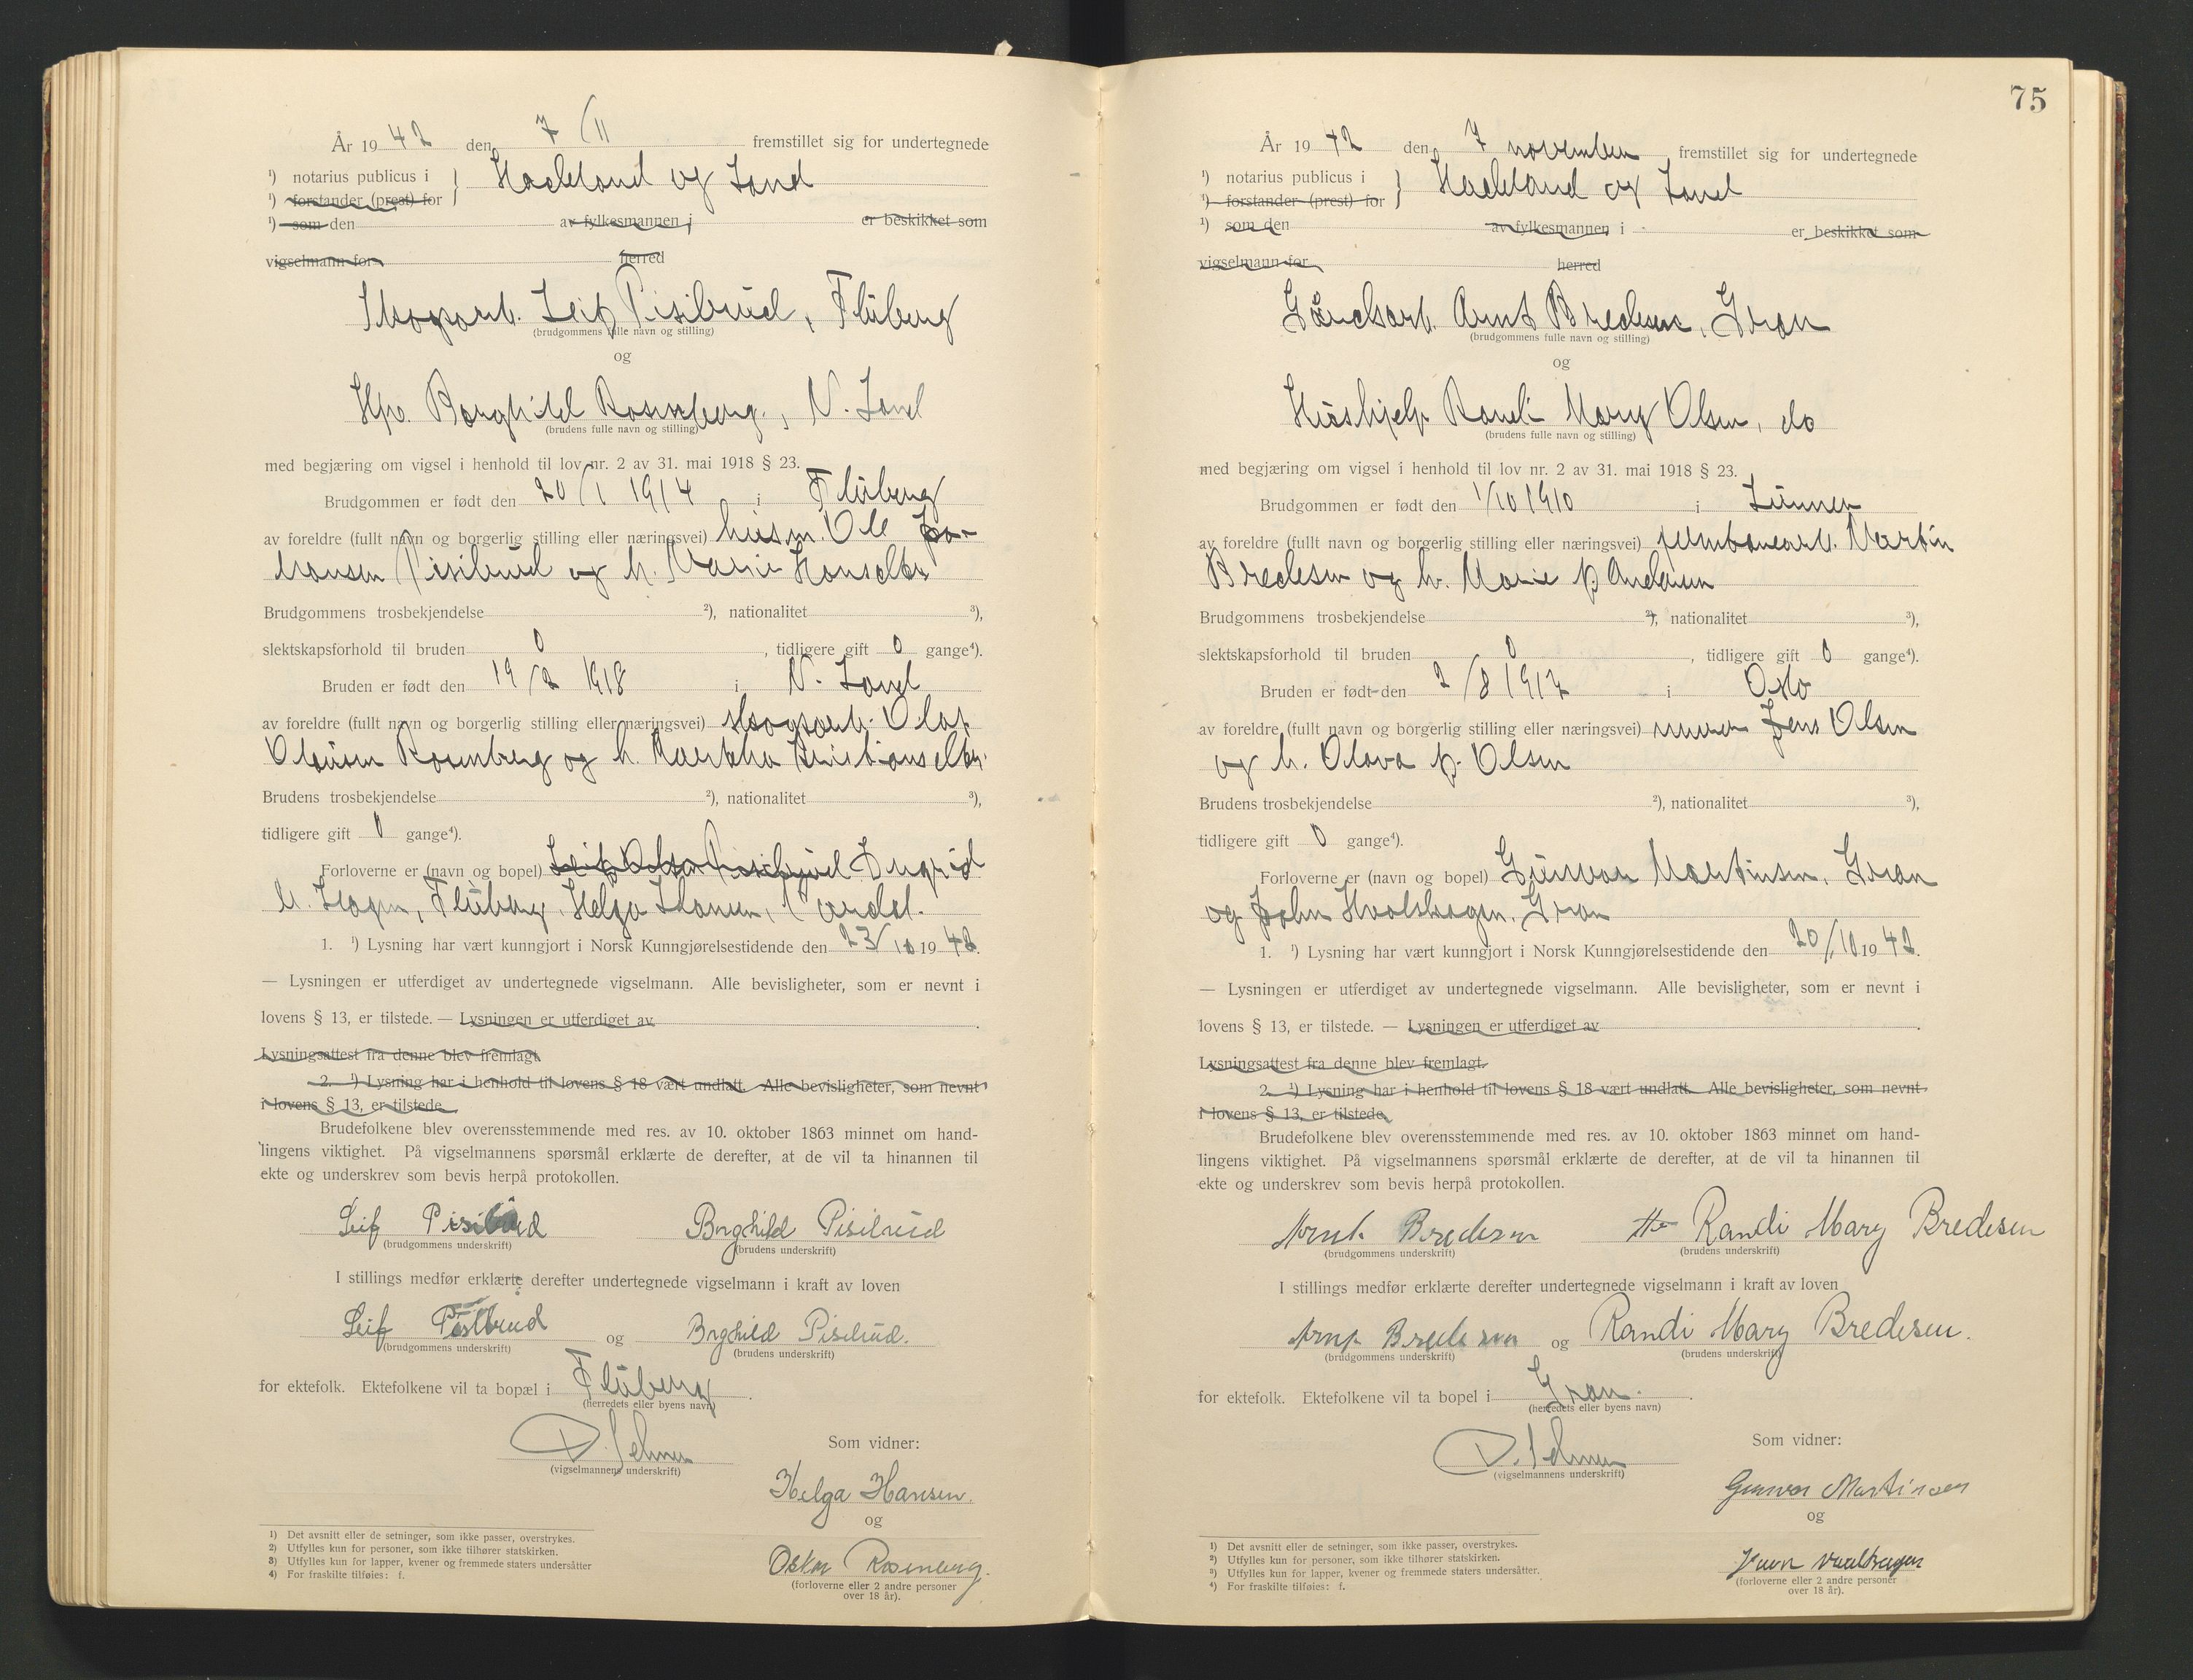 År 1942 den 7/11 fremstillet sig for undertegnede
¹) notarius publicus i } Hadeland og Land
¹) forstander (prest) for
¹) som den av fylkesmannen i er beskikket som
vigselmann for herred
Skogsarb. Leif Pisilrud, Fluberg
(brudgommens fulle navn og stilling)
og
Hp. Borghild Rosenberg, N. Land
(brudens fulle navn og stilling)
med begjæring om vigsel i henhold til lov nr. 2 av 31. mai 1918 § 23.
Brudgommen er født den 20/1 1914 i Fluberg
av foreldre (fullt navn og borgerlig stilling eller næringsvei) husm. Ole Jo-
hansen Pisilrud og h. Marie Hansdtr
Brudgommens trosbekjendelse ²), nationalitet ³),
slektskapsforhold til bruden 0 , tidligere gift 0 gange⁴).
Bruden er født den 19/2 1918 i N. Land
av foreldre (fullt navn og borgerlig stilling eller næringsvei) skogsarb. Olaf
Olausen Rosenberg og h. Martha Kristiansdtr.
Brudens trosbekjendelse ²), nationalitet ³),
tidligere gift 0 gange⁴).
Forloverne er (navn og bopel) Leif Pisilrud Ingrid
M. Fluberg, Helga Hansen,
1. ¹) Lysning har vært kunngjort i Norsk Kunngjørelsestidende den 23/10 1942.
— Lysningen er utferdiget av undertegnede vigselmann. Alle bevisligheter, som er nevnt i
lovens § 13, er tilstede. — Lysningen er utferdiget av .
Lysningsattest fra denne blev fremlagt.
2. ¹) Lysning har i henhold til lovens § 18 vært undlatt. Alle bevisligheter, som nevnt
i lovens § 13, er tilstede.
Brudefolkene blev overensstemmende med res. av 10. oktober 1863 minnet om hand-
lingens viktighet. På vigselmannens spørsmål erklærte de derefter, at de vil ta hinannen til
ekte og underskrev som bevis herpå protokollen.
Leif Pisilrud Borghild Pisilrud
(brudgommens underskrift) (brudens underskrift)
I stillings medfør erklærte derefter undertegnede vigselmann i kraft av loven
Leif Pisilrud og Borghild Pisilrud.
(brudgommens underskrift) (brudens underskrift)
for ektefolk. Ektefolkene vil ta bopæl i Fluberg .
(herredets eller byens navn)
Som vidner:
(vigselmannens underskrift)
Helga Hansen.
og
Oskar Rosenberg.
(forloverne eller 2 andre personer
over 18 år).
1) Det avsnitt eller de setninger, som ikke passer, overstrykes.
2) Utfylles kun for personer, som ikke tilhører statskirken.
3) Utfylles kun for lapper, kvener og fremmede staters undersåtter
4) For fraskilte tilføies: f.
75
År 1942 den 7 november fremstillet sig for undertegnede
¹) notarius publicus i } Hadeland og Land
¹) forstander (prest) for
¹) som den av fylkesmannen i er beskikket som
vigselmann for herred
Gårdsarb. Arnt Bredesen, Gran
(brudgommens fulle navn og stilling)
og
Hushjelp Randi Mary Olsen, do
(brudens fulle navn og stilling)
med begjæring om vigsel i henhold til lov nr. 2 av 31. mai 1918 § 23.
Brudgommen er født den 1/10 1910 i Lunner
av foreldre (fullt navn og borgerlig stilling eller næringsvei) jernbanearb. Martin
Bredesen og h. Marie f. Andersen
Brudgommens trosbekjendelse ²), nationalitet ³),
slektskapsforhold til bruden 0 , tidligere gift 0 gange⁴).
Bruden er født den 2/8 1917 i Oslo
av foreldre (fullt navn og borgerlig stilling eller næringsvei) murer Jens Olsen
og h. Olava f. Olsen
Brudens trosbekjendelse ²), nationalitet ³),
tidligere gift 0 gange⁴).
Forloverne er (navn og bopel) Gunvor Martinsen, Gran
og John Gran
1. ¹) Lysning har vært kunngjort i Norsk Kunngjørelsestidende den 20/10 1942.
— Lysningen er utferdiget av undertegnede vigselmann. Alle bevisligheter, som er nevnt i
lovens § 13, er tilstede. — Lysningen er utferdiget av .
Lysningsattest fra denne blev fremlagt.
2. ¹) Lysning har i henhold til lovens § 18 vært undlatt. Alle bevisligheter, som nevnt
i lovens § 13, er tilstede.
Brudefolkene blev overensstemmende med res. av 10. oktober 1863 minnet om hand-
lingens viktighet. På vigselmannens spørsmål erklærte de derefter, at de vil ta hinannen til
ekte og underskrev som bevis herpå protokollen.
Arnt Bredesen Randi Mary Bredesen
(brudgommens underskrift) (brudens underskrift)
I stillings medfør erklærte derefter undertegnede vigselmann i kraft av loven
Arnt Bredesen og Randi Mary Bredesen.
(brudgommens underskrift) (brudens underskrift)
for ektefolk. Ektefolkene vil ta bopel i Gran.
(herredets eller byens navn)
Som vidner:
(vigselmannens underskrift)
Gunvor Martinsen
og
(forloverne eller 2 andre personer
over 18 år).
1) Det avsnitt eller de setninger, som ikke passer, overstrykes.
2) Utfylles kun for personer, som ikke tilhører statskirken.
3) Utfylles kun for lapper, kvener og fremmede staters undersåtter.
4) For fraskilte tilføies: f.